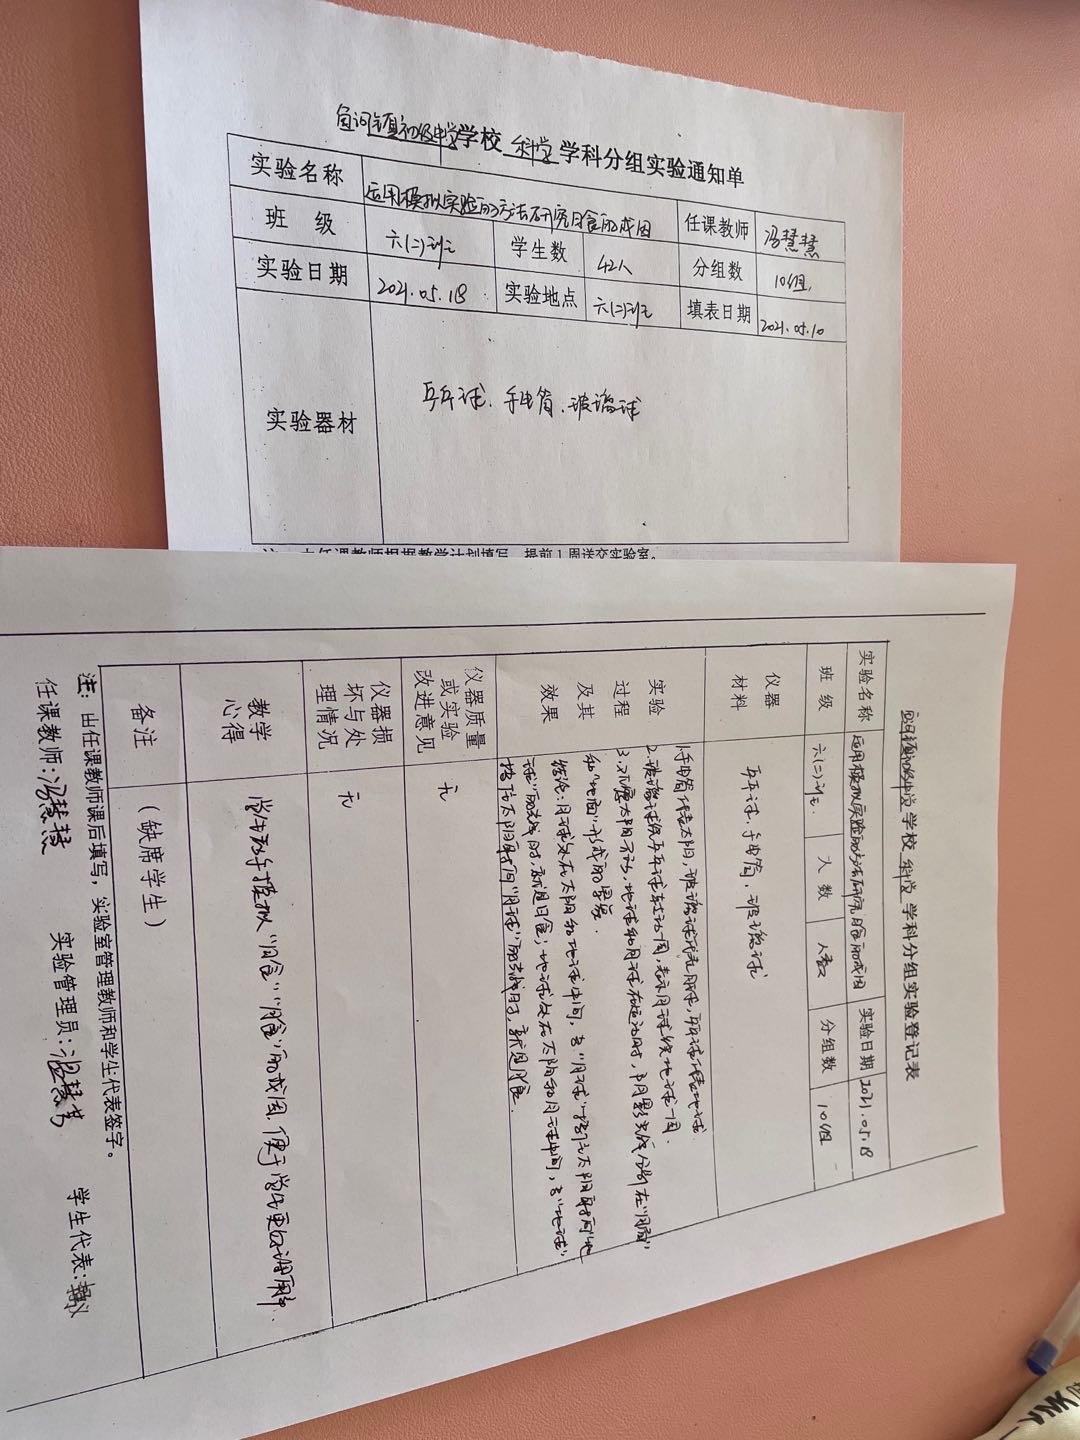 镇初级中学学校 科学 学科分组实验通知单
实验名称 运用模拟实验的方法研究日食的成因 任课教师 冯慧慧
班 级 六(二)班 学生数 42人 分组数 10组
实验日期 2021.05.18 实验地点 六(二)班 填表日期 2021.05.10
实验器材 乒乓球、手电筒、玻璃球
注:由任课教师根据教学计划填写,提前1周送交实验室。
镇初级中学学校 科学 学科分组实验登记表
实验名称 运用模拟实验的方法研究日食的成因 实验日期 2021.05.18
班 级 六(二)班 人 数 分组数 10组
仪器材料 乒乓球、手电筒、玻璃球
实验过程及其效果
1.手电筒代表太阳,玻璃球代表月球,乒乓球代表地球
2.玻璃球绕乒乓球转动一周,表示月球绕地球一周.
3.观察太阳不动,地球和月球在运动时,
和"地面"形成的暑影.
结论:月球处在太阳和地球中间,当"月球"挡住太阳射向"地
球"的光线时,就是日食;地球处在太阳和月球中间,当"地球"
挡住太阳射向"月球"的光线时,就是月食.
仪器质量或实验改进意见 无
仪器损坏与处理情况 无
教学心得 学生动手模拟"日食""月食"的成因,便于学生更好理解.
备注 (缺席学生)
注:由任课教师课后填写,实验室管理教师和学生代表签字。
任课教师:冯慧慧 实验管理员: 学生代表: